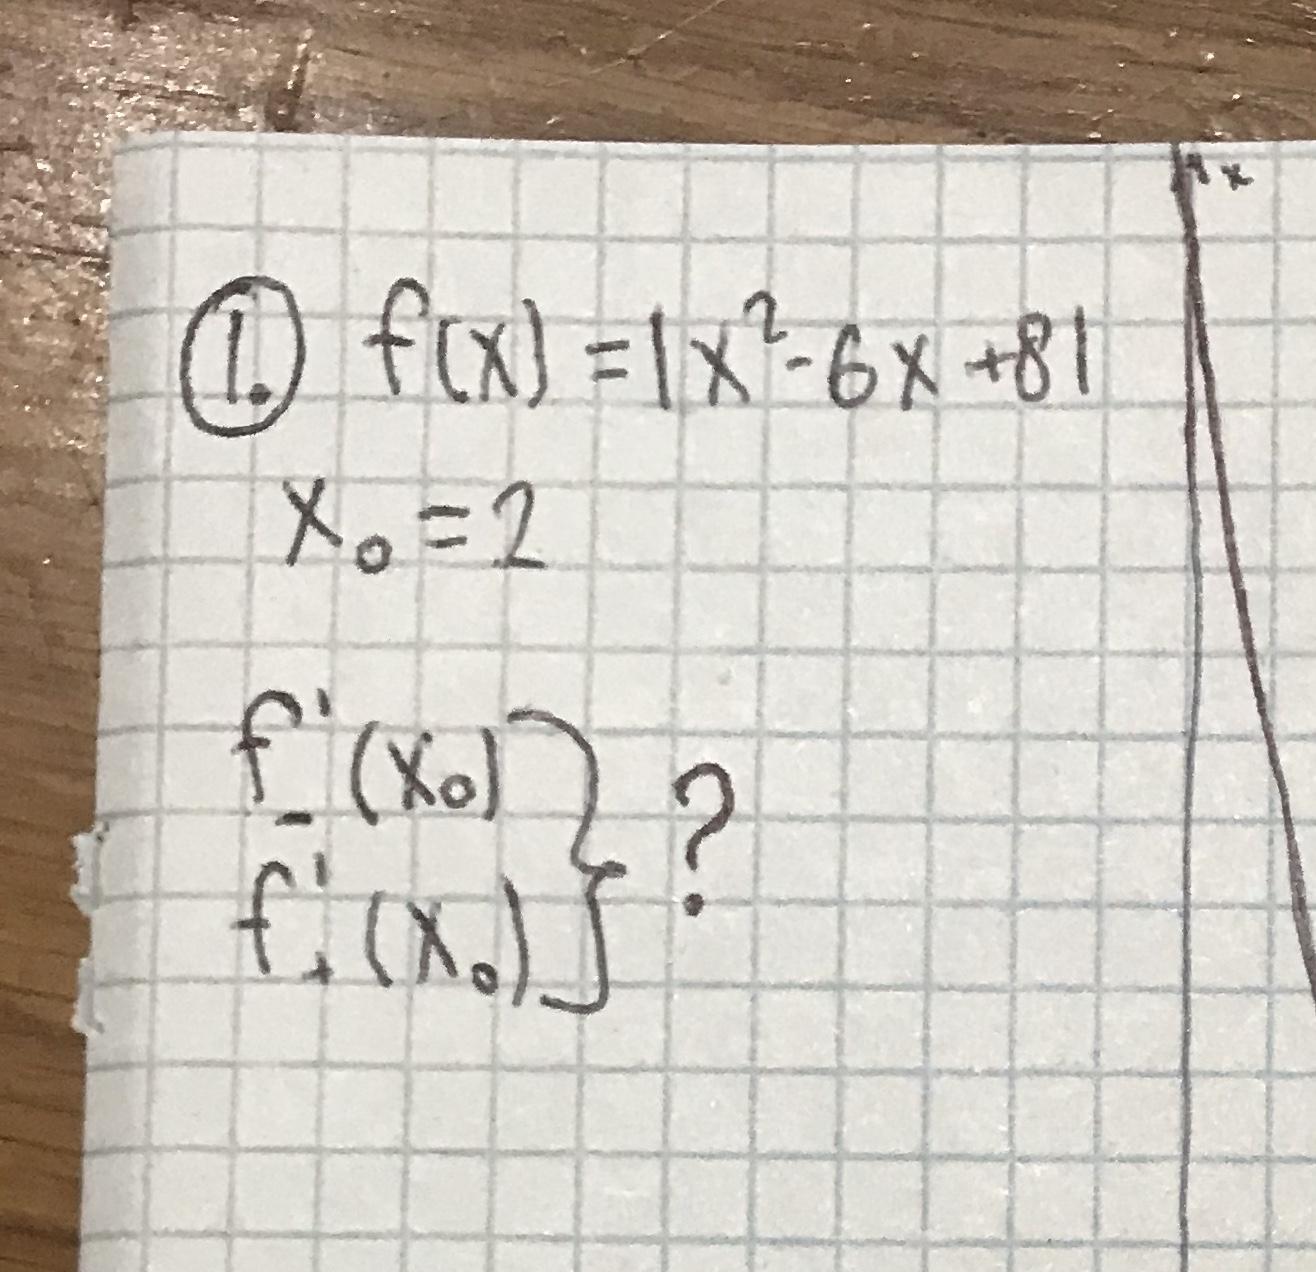 1. f(x) = |x²-6x+8|
x₀ = 2
f'₋(x₀)
f'₊(x₀) } ?
x